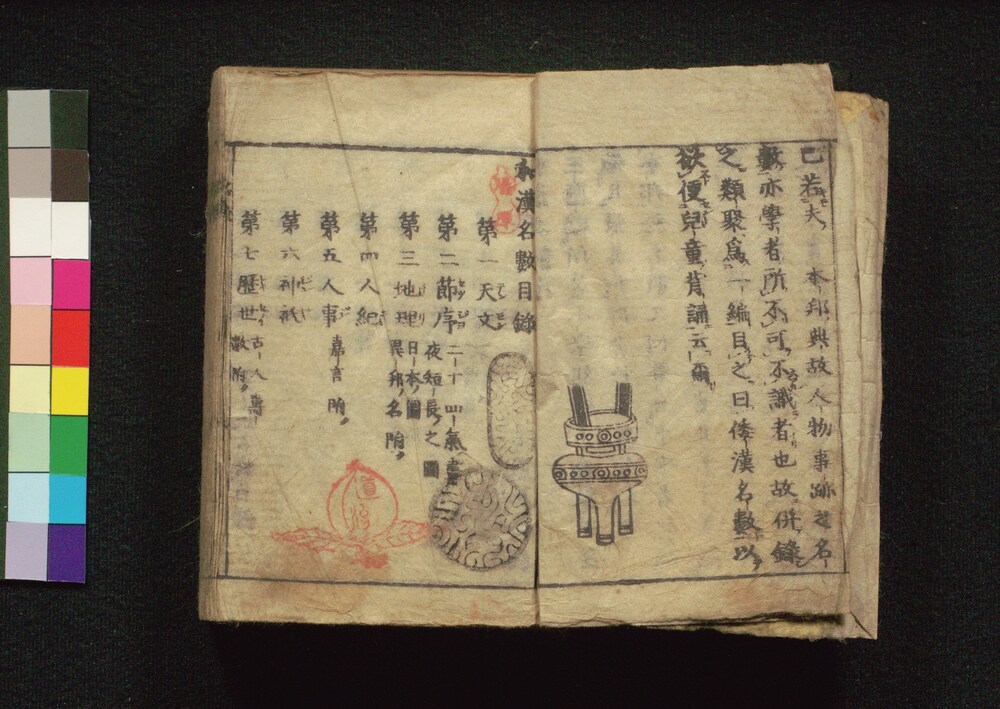 已若夫 本邦典故人物事跡之名
數亦學者所不可不識者也故併錄
之類聚爲一編目之曰倭漢名數以
欲便兒童背誦云爾
和漢名數目錄
第一天文
第二節序 二十四氣 晝夜短長之圖
第三地理 日本圖 異邦名附
第四人紀
第五人事 嘉言附
第六神祇
第七歷世 古人壽數附